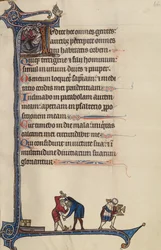 Audite hec omnes gentes:
auribus percipite omnes
qui habitatis orbem.
Quique terrigene et filii hominum:
simul in unum dives et pauper.
Os meum loquetur sapientiam: et me
ditatio cordis mei prudentiam.
Inclinabo in parabolam aurem
meam: aperiam in psalterio pro
positionem meam.
Cur timebo in die mala: iniquitas
calcanei mei circumdabit me.
Qui confidunt in virtute sua: et in
multitudine divitiarum suarum
gloriantur.